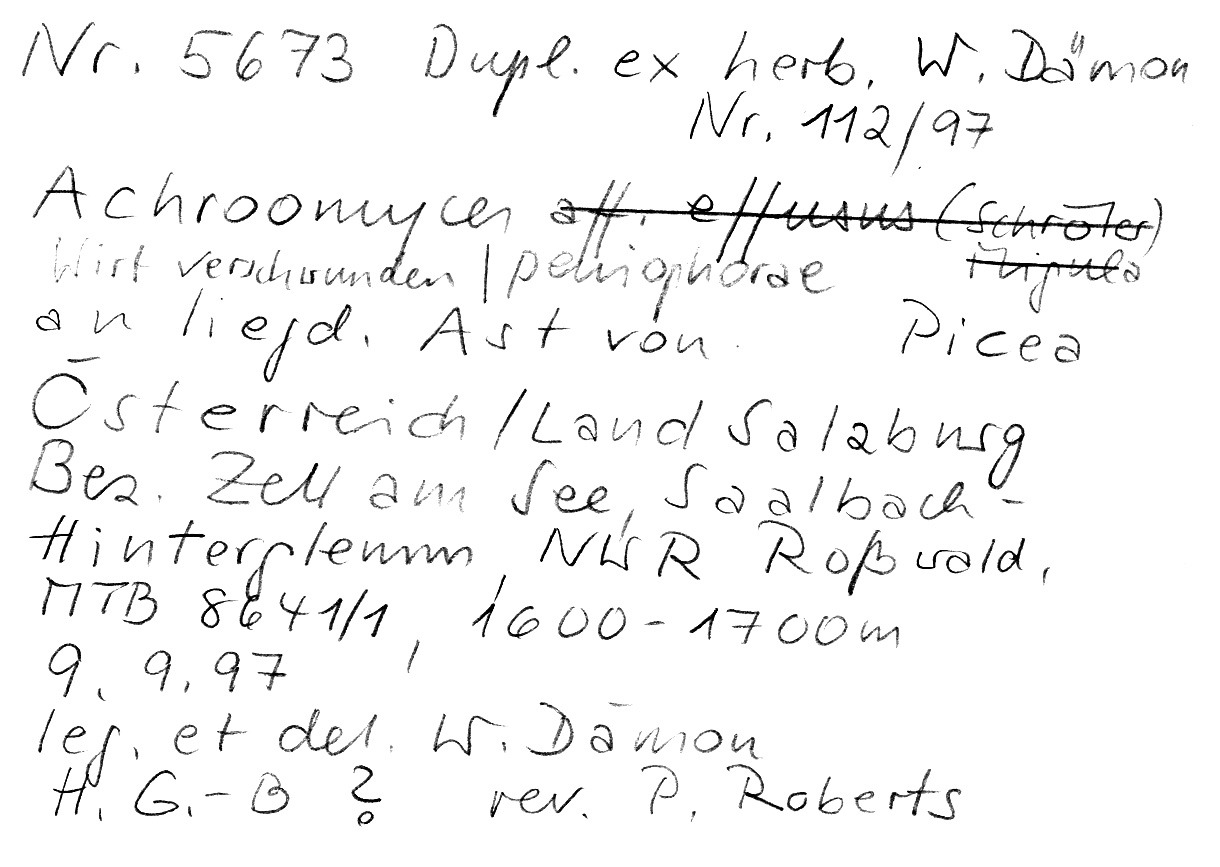 Nr. 5673 Dupl. ex herb. W. Dämon
Nr. 112/97
Achroomyces aff. effusus (Schröter)
Migula
Wirt verschwunden | peniophorae
an liegd. Ast von Picea
Österreich/Land Salzburg
Bez. Zell am See, Saalbach-
Hinterglemm, NWR Roßwald,
MTB 8641/1, 1600-1700m
9. 9. 97
leg. et det. W. Dämon
H. G.-B ? rev. P. Roberts